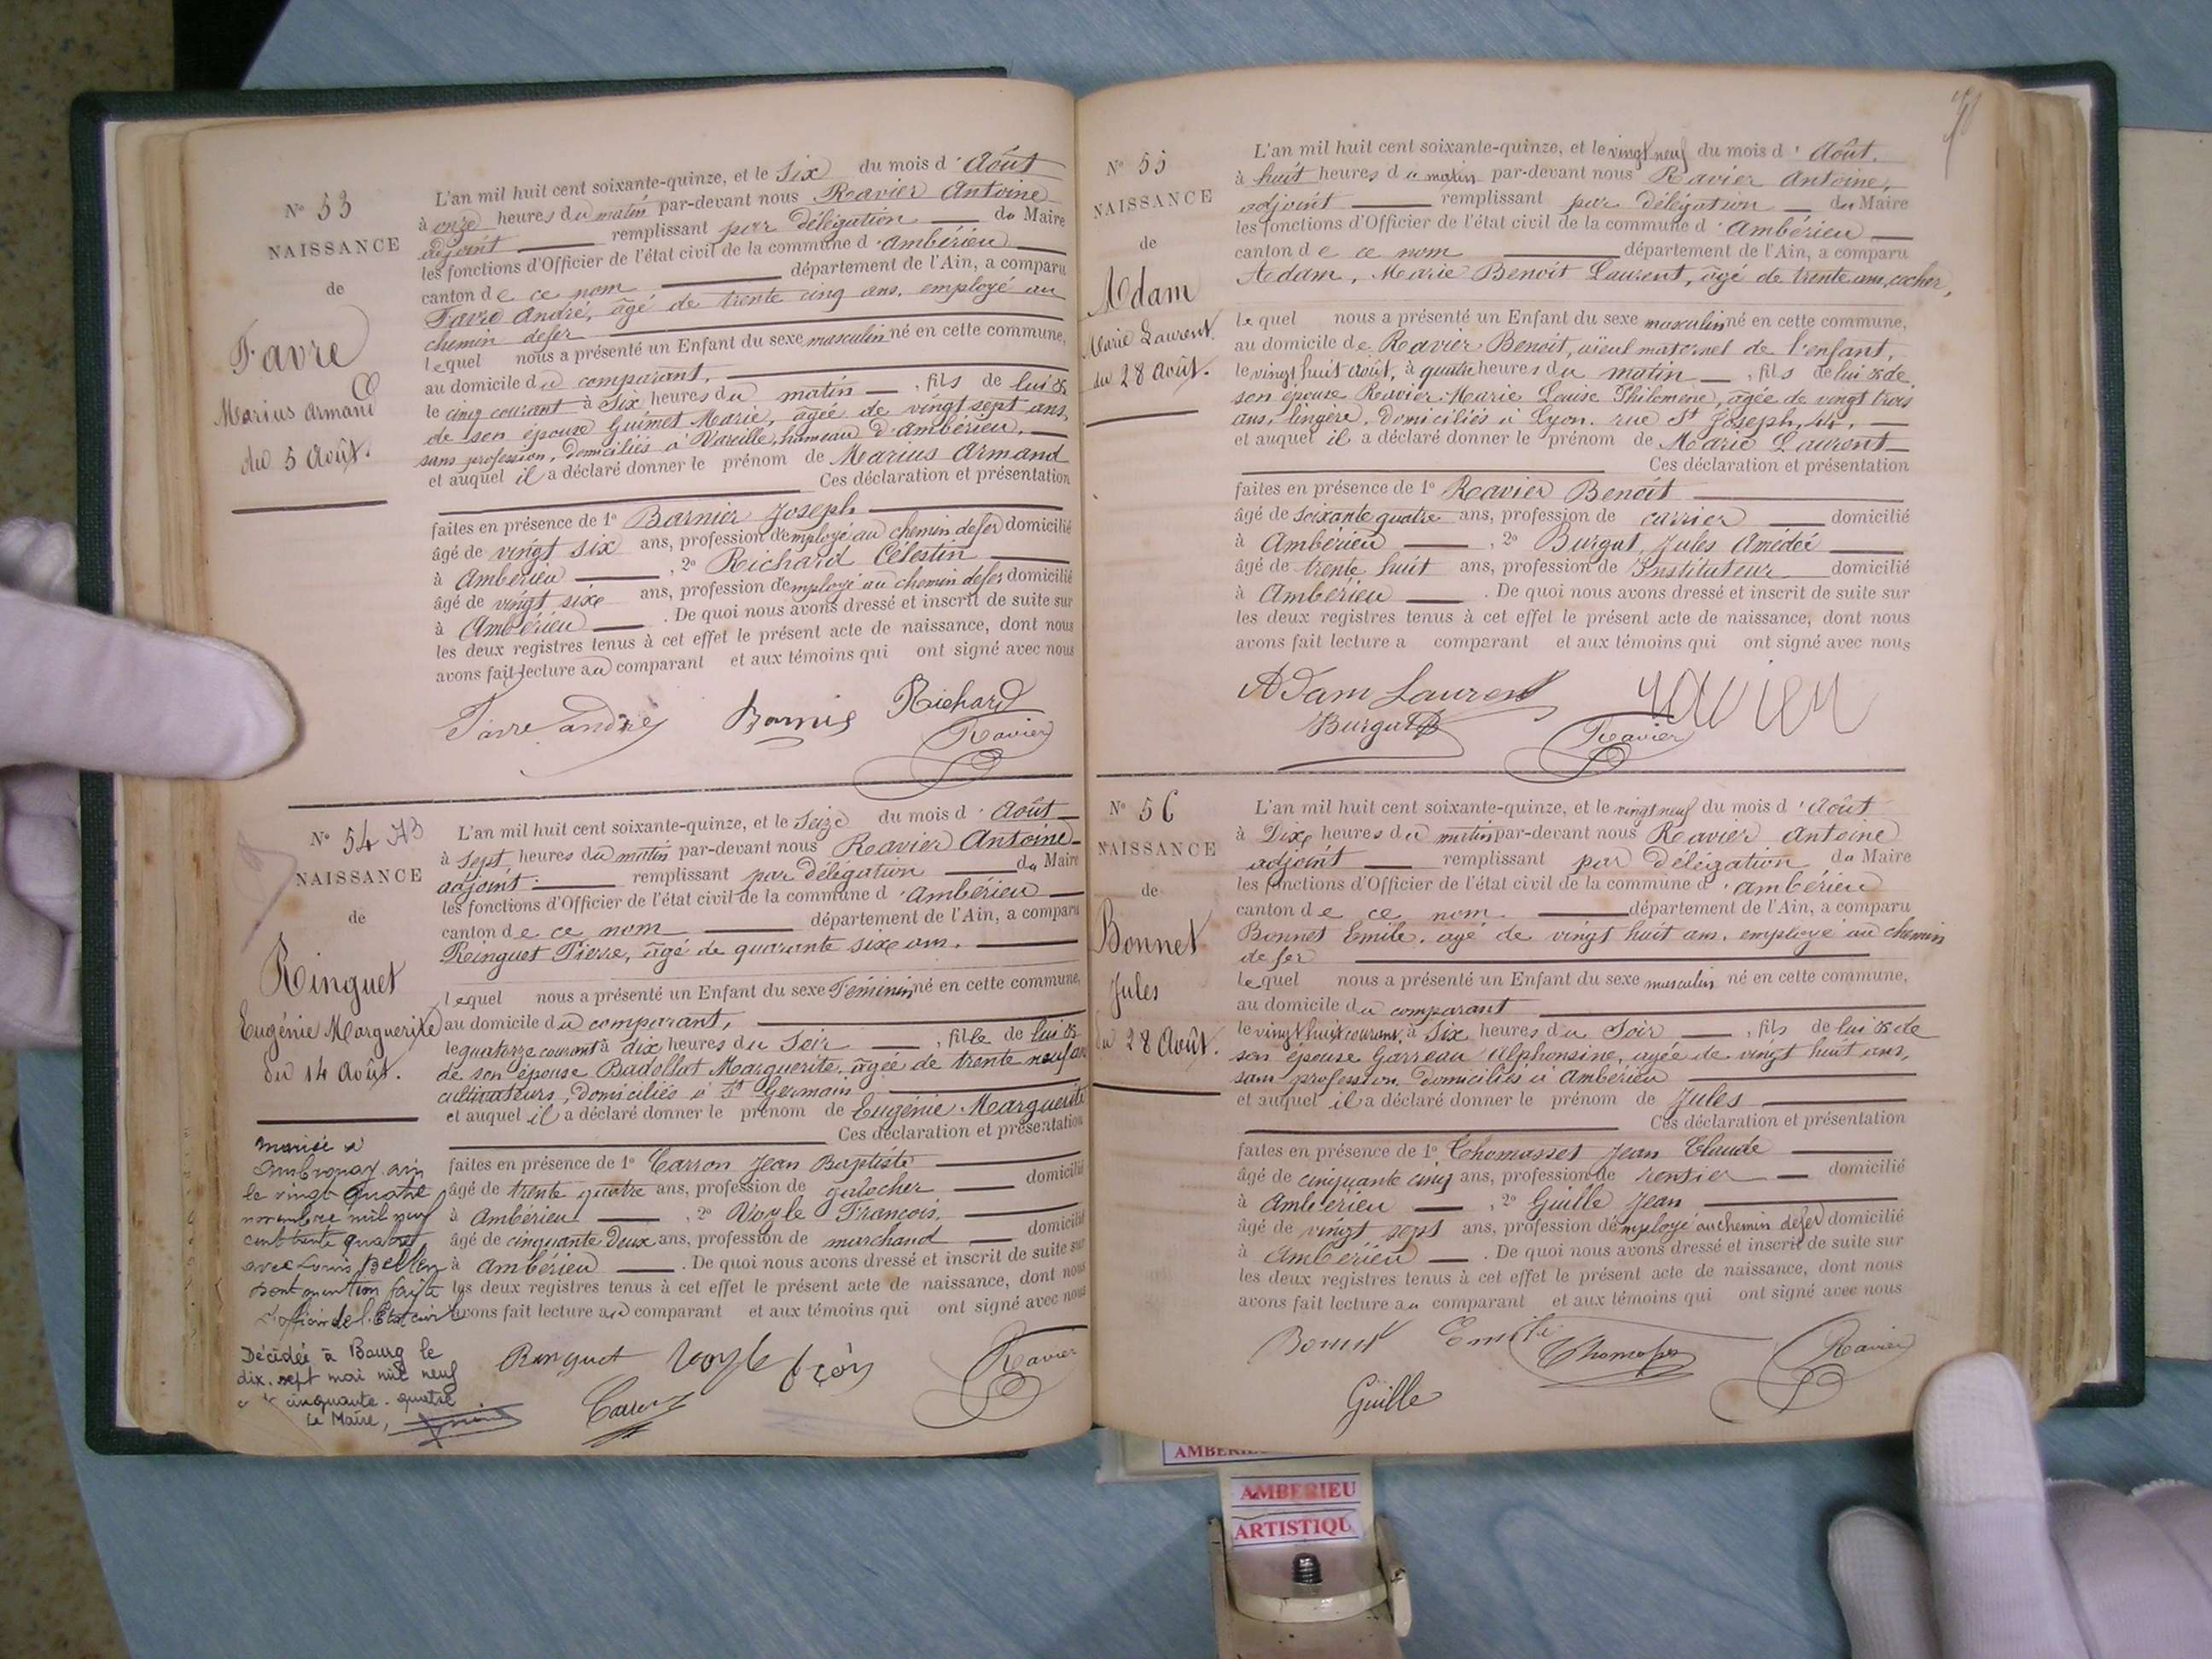 N° 53
NAISSANCE
de
Favre
Marius Armand
du 5 Août.
L'an mil huit cent soixante-quinze, et le Six du mois d'Août
à onze heures du matin par-devant nous Ravier Antoine
adjoint remplissant par délégation du Maire
les fonctions d'Officier de l'état civil de la commune d'Ambérieu
canton de ce nom département de l'Ain, a comparu
Favre André, âgé de trente cinq ans, employé au
chemin de fer
lequel nous a présenté un Enfant du sexe masculin né en cette commune,
au domicile du comparant,
le cinq courant à Six heures du matin, fils de lui &
de son épouse Guimet Marie, âgée de vingt sept ans,
sans profession, domiciliés à Vareille, hameau d'Ambérieu,
et auquel il a déclaré donner le prénom de Marius Armand
Ces déclaration et présentation
faites en présence de 1° Barnier Joseph
âgé de vingt six ans, profession d'employé au chemin de fer domicilié
à Ambérieu, 2° Richard Célestin
âgé de vingt six ans, profession d'employé au chemin de fer domicilié
à Ambérieu. De quoi nous avons dressé et inscrit de suite sur
les deux registres tenus à cet effet le présent acte de naissance, dont nous
avons fait lecture au comparant et aux témoins qui ont signé avec nous
Favre andré Richard
Ravier
N° 54 AB
NAISSANCE
de
Ringuet
Eugénie Marguerite
du 14 Août.
L'an mil huit cent soixante-quinze, et le Seize du mois d'Août
à Sept heures du matin par-devant nous Ravier Antoine
adjoint remplissant par délégation du Maire
les fonctions d'Officier de l'état civil de la commune d'Ambérieu
canton de ce nom département de l'Ain, a comparu
Ringuet Pierre, âgé de quarante six ans.
lequel nous a présenté un Enfant du sexe Féminin né en cette commune,
au domicile du comparant,
le quatorze courant à dix heures du Soir, fille de lui &
de son épouse Badollat Marguerite, âgée de trente neuf ans
cultivateurs, domiciliés à St Germain
et auquel il a déclaré donner le prénom de Eugénie Marguerite
Ces déclaration et présentation
faites en présence de 1° Carron Jean Baptiste
âgé de trente quatre ans, profession de galocher domicilié
à Ambérieu, 2° Voyle François,
âgé de cinquante Deux ans, profession de marchand domicilié
à Ambérieu. De quoi nous avons dressé et inscrit de suite sur
les deux registres tenus à cet effet le présent acte de naissance, dont nous
avons fait lecture au comparant et aux témoins qui ont signé avec nous
mariée à
Ambronay ain
le vingt quatre
novembre mil neuf
cent trente quatre
avec Louis
Dont mention faite
L'officier de l'Etat civil
Décédée à Bourg le
dix-sept mai mil neuf
cinquante-quatre
Le Maire,
Ringuet Voyle fçois Ravier
Carron
N° 55
NAISSANCE
de
Adam
Marie Laurent
du 28 Août.
L'an mil huit cent soixante-quinze, et le vingt neuf du mois d'Août.
à huit heures du matin par-devant nous Ravier Antoine,
adjoint remplissant par délégation du Maire
les fonctions d'Officier de l'état civil de la commune d'Ambérieu
canton de ce nom département de l'Ain, a comparu
Adam, Marie Benoit Laurent, âgé de trente ans, cocher,
lequel nous a présenté un Enfant du sexe masculin né en cette commune,
au domicile de Ravier Benoit, aïeul maternel de l'enfant,
le vingt huit Août, à quatre heures du matin, fils de lui & de
son épouse Ravier Marie Louise Philomène, âgée de vingt trois
ans, lingère, domiciliés à Lyon, rue St Joseph, 44,
et auquel il a déclaré donner le prénom de Marie Laurent
Ces déclaration et présentation
faites en présence de 1° Ravier Benoit
âgé de soixante quatre ans, profession de carrier domicilié
à Ambérieu, 2° Burgat, Jules Amédée
âgé de trente huit ans, profession de Instituteur domicilié
à Ambérieu. De quoi nous avons dressé et inscrit de suite sur
les deux registres tenus à cet effet le présent acte de naissance, dont nous
avons fait lecture a comparant et aux témoins qui ont signé avec nous
Adam Laurent ravier
Burgat Ravier
N° 56
NAISSANCE
de
Bonnet
Jules
du 28 Août.
L'an mil huit cent soixante-quinze, et le vingt neuf du mois d'Août
à Dix heures du matin par-devant nous Ravier Antoine
adjoint remplissant par délégation du Maire
les fonctions d'Officier de l'état civil de la commune d'Ambérieu
canton de ce nom département de l'Ain, a comparu
Bonnet Emile, âgé de vingt huit ans, employé au chemin
de fer
lequel nous a présenté un Enfant du sexe masculin né en cette commune,
au domicile du comparant
le vingt huit courant, à Six heures du Soir, fils de lui & de
son épouse Garreau Alphonsine, âgée de vingt huit ans,
sans profession, domiciliés à Ambérieu
et auquel il a déclaré donner le prénom de Jules
Ces déclaration et présentation
faites en présence de 1° Thomasset Jean Claude
âgé de cinquante cinq ans, profession de rentier domicilié
à Ambérieu, 2° Guille Jean
âgé de vingt sept ans, profession d'employé au chemin de fer domicilié
à Ambérieu. De quoi nous avons dressé et inscrit de suite sur
les deux registres tenus à cet effet le présent acte de naissance, dont nous
avons fait lecture au comparant et aux témoins qui ont signé avec nous
Bonnet Emile Ravier
Guille
AMBERIEU
ARTISTIQU